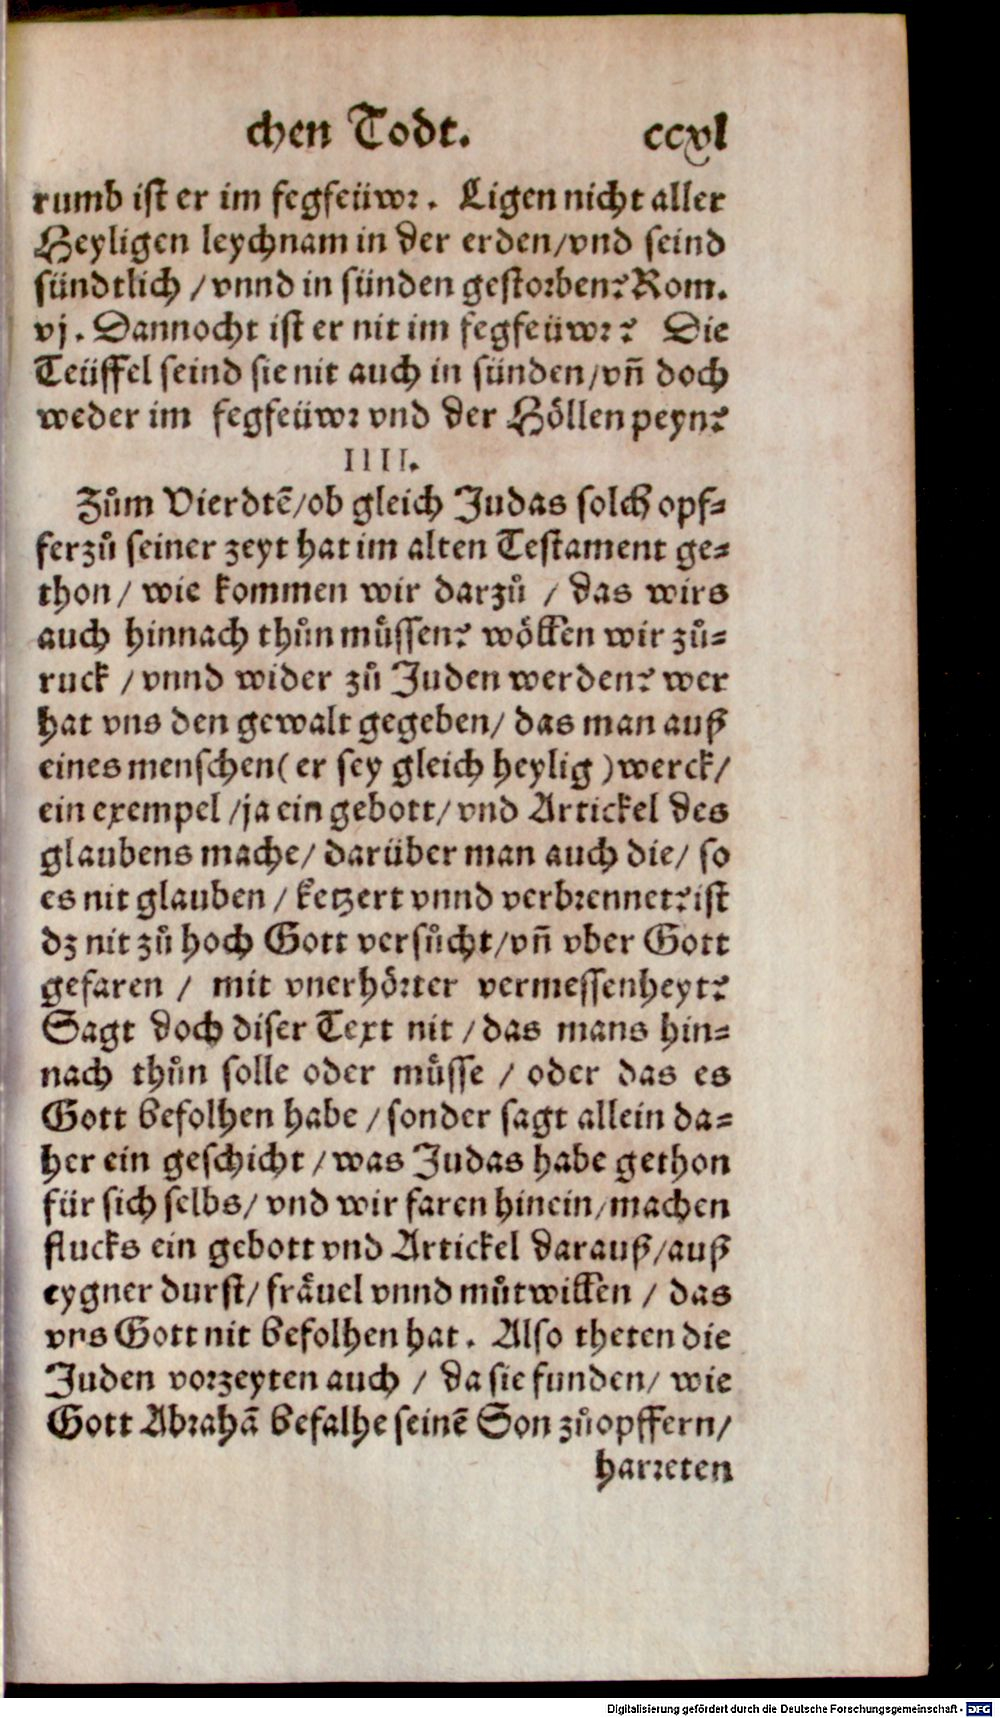 chen Todt. ccxl
rumb ist er im fegfeüwr. Ligen nicht aller
Heyligen leychnam in der erden/vnd seind
sündtlich /vnnd in sünden gestorben? Rom.
vj. Dannocht ist er nit im fegfeüwr? Die
Teüffel seind sie nit auch in sünden/vñ doch
weder im fegfeüwr vnd der Höllen peyn?
IIII.
Zům Vierdtẽ/ob gleich Judas solch opf-
ferzů seiner zeyt hat im alten Testament ge-
thon/ wie kommen wir darzů / das wirs
auch hinnach thůn můssen? wöllen wir zů-
ruck /vnnd wider zů Juden werden? wer
hat vns den gewalt gegeben/ das man auß
eines menschen( er sey gleich heylig )werck/
ein exempel /ja ein gebott/ vnd Artickel des
glaubens mache/ darüber man auch die/ so
es nit glauben / ketzert vnnd verbrennet? ist
dz nit zů hoch Gott versůcht/vñ vber Gott
gefaren / mit vnerhörter vermessenheyt?
Sagt doch diser Text nit /das mans hin-
nach thůn solle oder můsse / oder das es
Gott befolhen habe /sonder sagt allein da-
her ein geschicht /was Judas habe gethon
für sich selbs/ vnd wir faren hinein/machen
flucks ein gebott vnd Artickel darauß/auß
eygner durst/ fråuel vnnd můtwillen / das
vns Gott nit befolhen hat. Also theten die
Juden vorzeyten auch / da sie funden/ wie
Gott Abrahã befalhe seinẽ Son zůopffern/
harreten
Digitalisierung gefördert durch die Deutsche Forschungsgemeinschaft - DFG